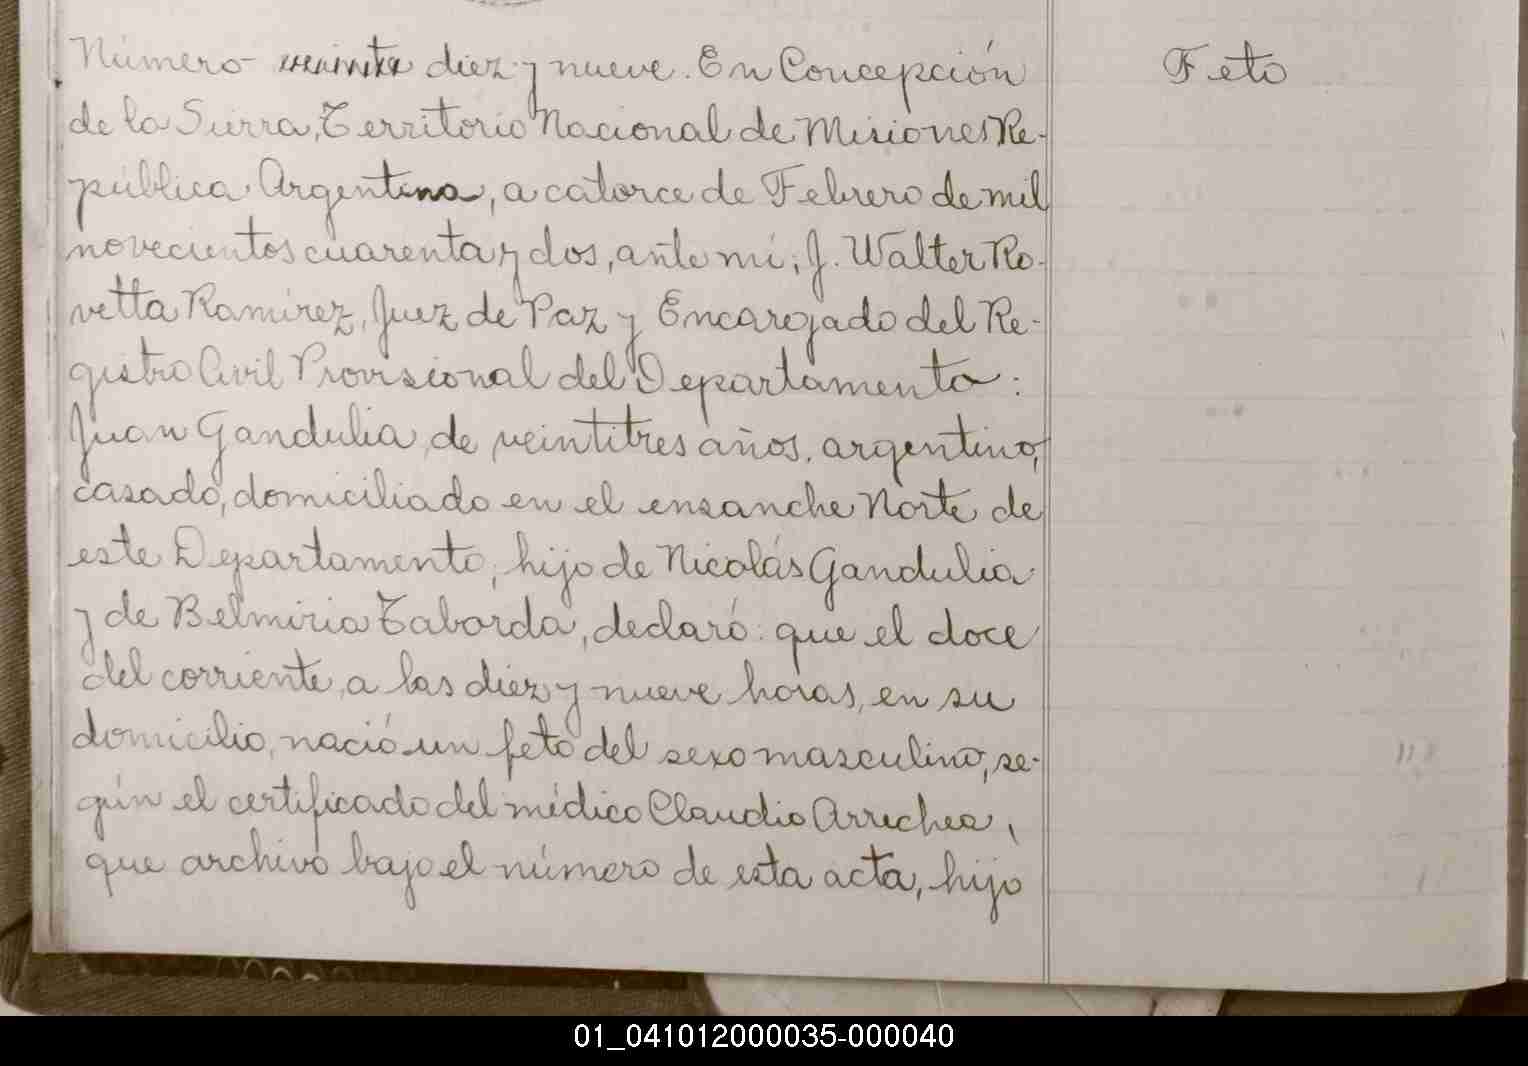 Número diez y nueve. En Concepción
de la Sierra, Territorio Nacional de Misiones Re-
pública Argentina, a catorce de Febrero de mil
novecientos cuarenta y dos, ante mí, J. Walter Ro-
vetta Ramírez, Juez de Paz y Encargado del Re-
gistro Civil Provisional del Departamento:
Juan Gandulia, de veintitres años, argentino,
casado, domiciliado en el ensanche Norte de
este Departamento, hijo de Nicolás Gandulia
y de Belmiria Taborda, declaró: que el doce
del corriente, a las diez y nueve horas, en su
domicilio, nació un feto del sexo masculino, se-
gún el certificado del médico Claudio Arrechea,
que archivo bajo el número de esta acta, hijo
Feto
01_041012000035-000040